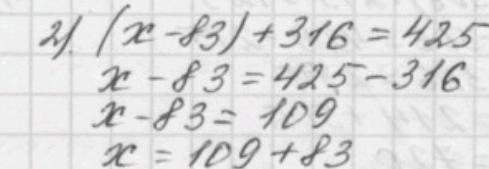 2). (x-83)+316=425
x-83=425-316
x-83=109
x=109+83